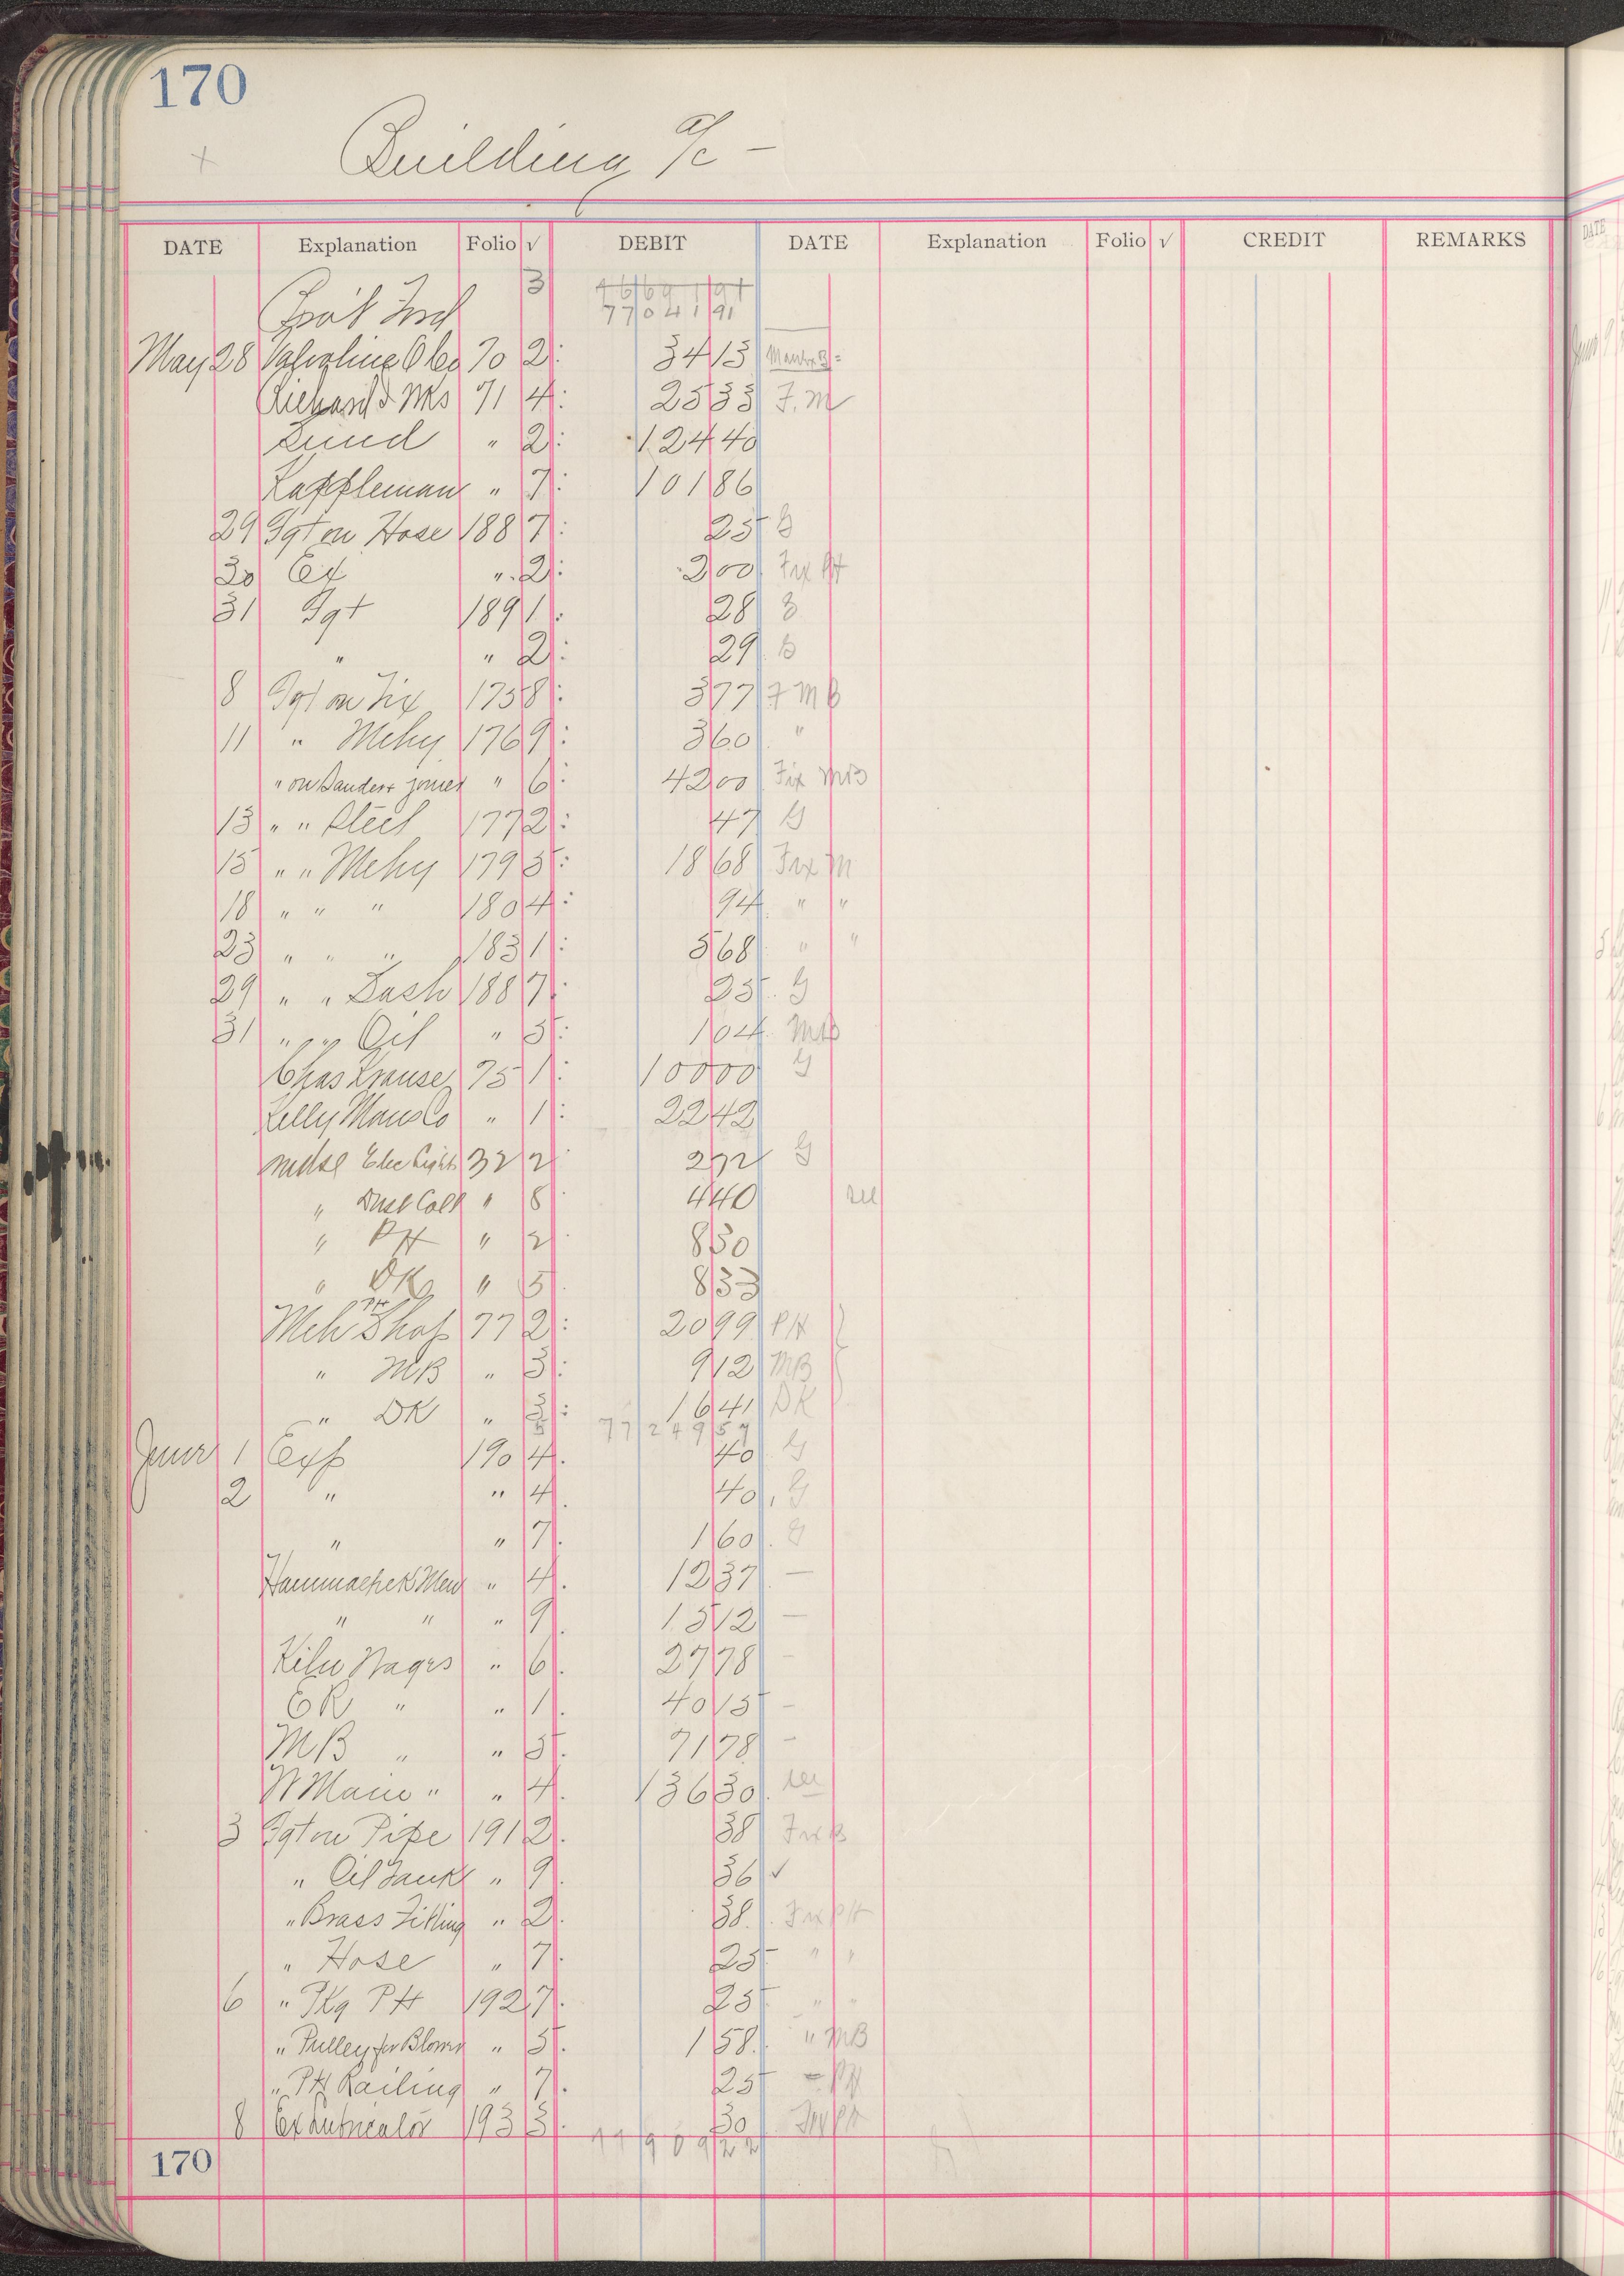 170
Building a/c -
DATE Explanation Folio √ DEBIT DATE Explanation Folio √ CREDIT REMARKS
3
77041 91
May 28 Valvoline O Co 70 2 34 13
Richard's Wks 71 4 25 33 F. M
Lund " 2 124 40
Kappleman " 7 101 86
29 Fgt on Hose 188 7 25 G
30 Ex " 2 2 00 Fix PH
31 Fgt 189 1 28
" " 2 29
8 Fgt on Fix 175 8 3 77 F MB
11 " Mchy 176 9 3 60 "
" on Sanders joiner " 6 42 00 Fix MB
13 " " Steel 177 2 47 G
15 " " Mchy 179 5 18 68 Fix M
18 " " " 180 4 94 " "
23 " " " 183 1 5 68 " "
29 " " Sash 188 7 25 G
31 " " " Oil " 5 1 04 MB
Chas Krause 75 1 100 00 G
Kelly Maus Co " 1 22 42
Mdse Elec Light 32 2 2 72 G
" Dust Coll " 8 4 40
" PH " 2 8 50
" DK " 5 8 33
Mch Shop PH 77 2 20 99 PH
" MB " 3 9 12 MB
" DK " 3 16 41 DK
77249 59
June 1 Exp 190 4 40 G
2 " " 4 40 G
" " 7 1 60 G
Hammacher " 4 12 37 —
" " " 9 15 12 —
Kiln Wages " 6 27 78 -
" " 1 40 15 -
MB " " 5 71 78 -
W Main " " 4 136 30
3 Fgt on Pipe 191 2 38 Fix B
" Oil Tank " 9 36 √
" Brass Fitting " 2 38 Fix PH
" Hose " 7 25 " "
6 " Pkg PH 192 7 25 " "
" Pulley for Blower " 5 1 58 " MB
" PH Railing " 7 25 " PH
8 Ex Lubricator 193 3 30 Fix PH
170